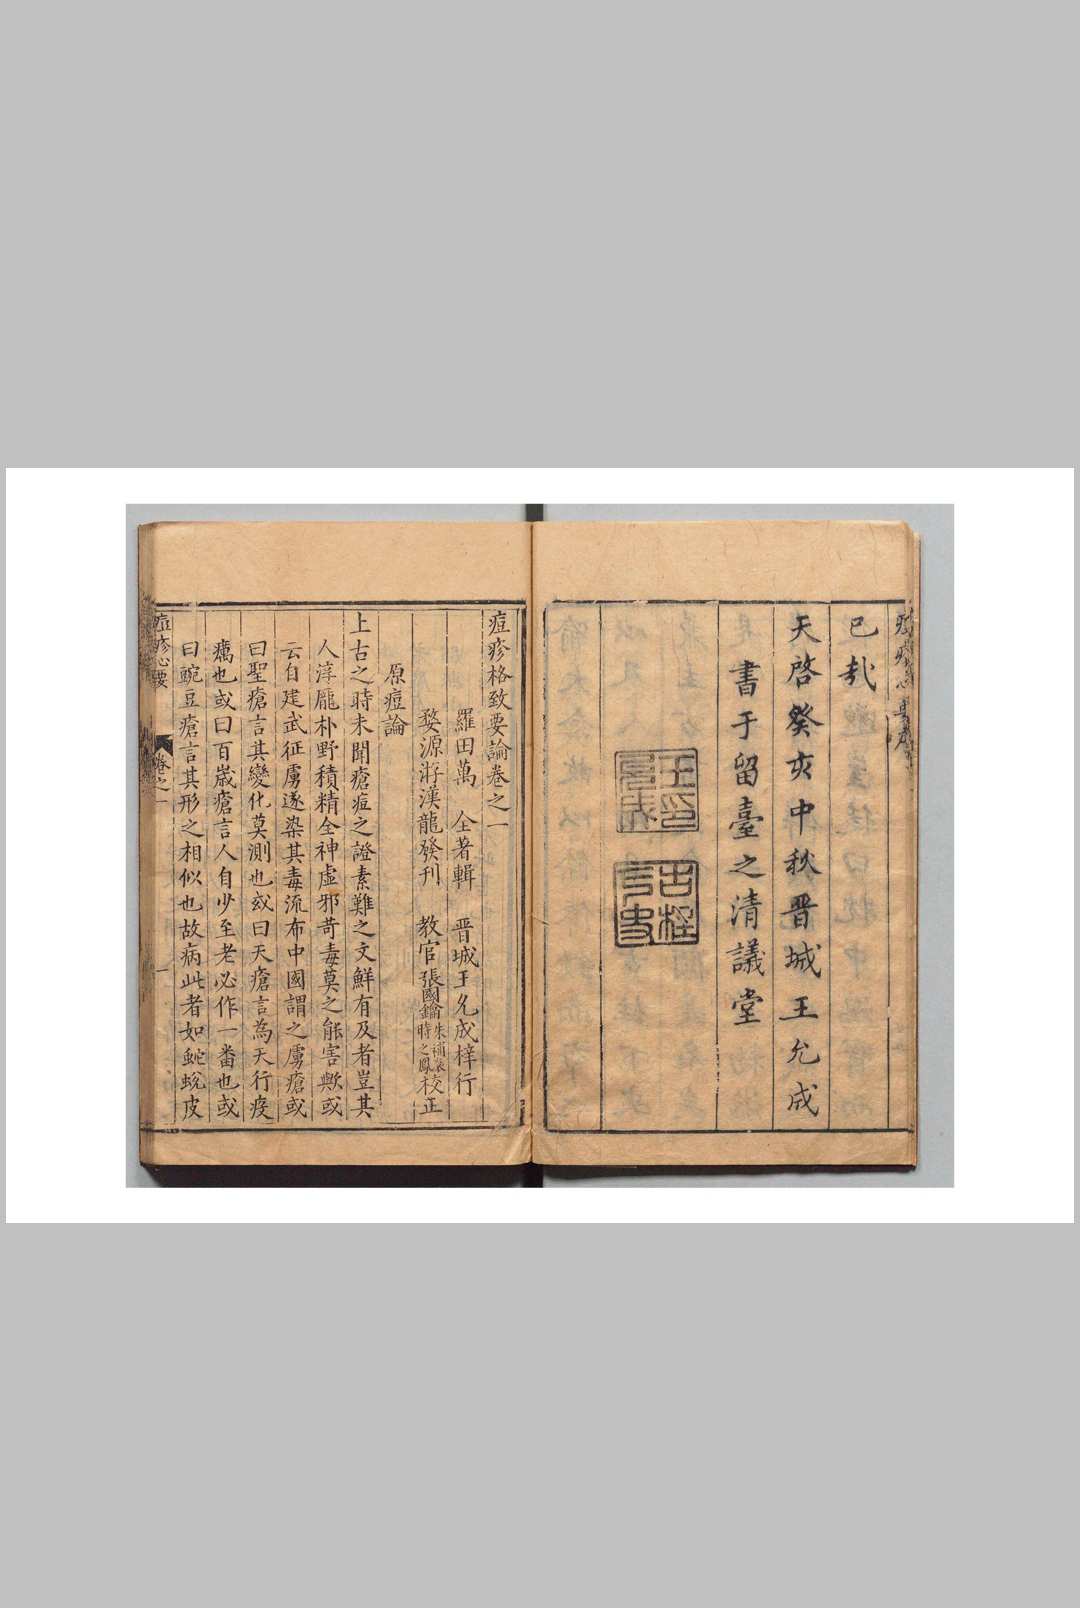 已哉
天啓癸亥中秋晋城王允成
書于留臺之清議堂
痘疹格致要論卷之一
羅田萬 全著輯 晋城王允成梓行
婺源游漢龍發刊 教官張國鑰朱補裘時之鳳校正
原痘論
上古之時未聞瘡痘之證素難之文鮮有及者豈其
人淳龐朴野積精全神虛邪苛毒莫之能害歟或
云自建武征虜遂染其毒流布中國謂之虜瘡或
曰聖瘡言其變化莫測也或曰天瘡言為天行疫
癘也或曰百歲瘡言人自少至老必作一番也或
曰豌豆瘡言其形之相似也故病此者如蛇蛻皮
痘疹心要
卷之一
一